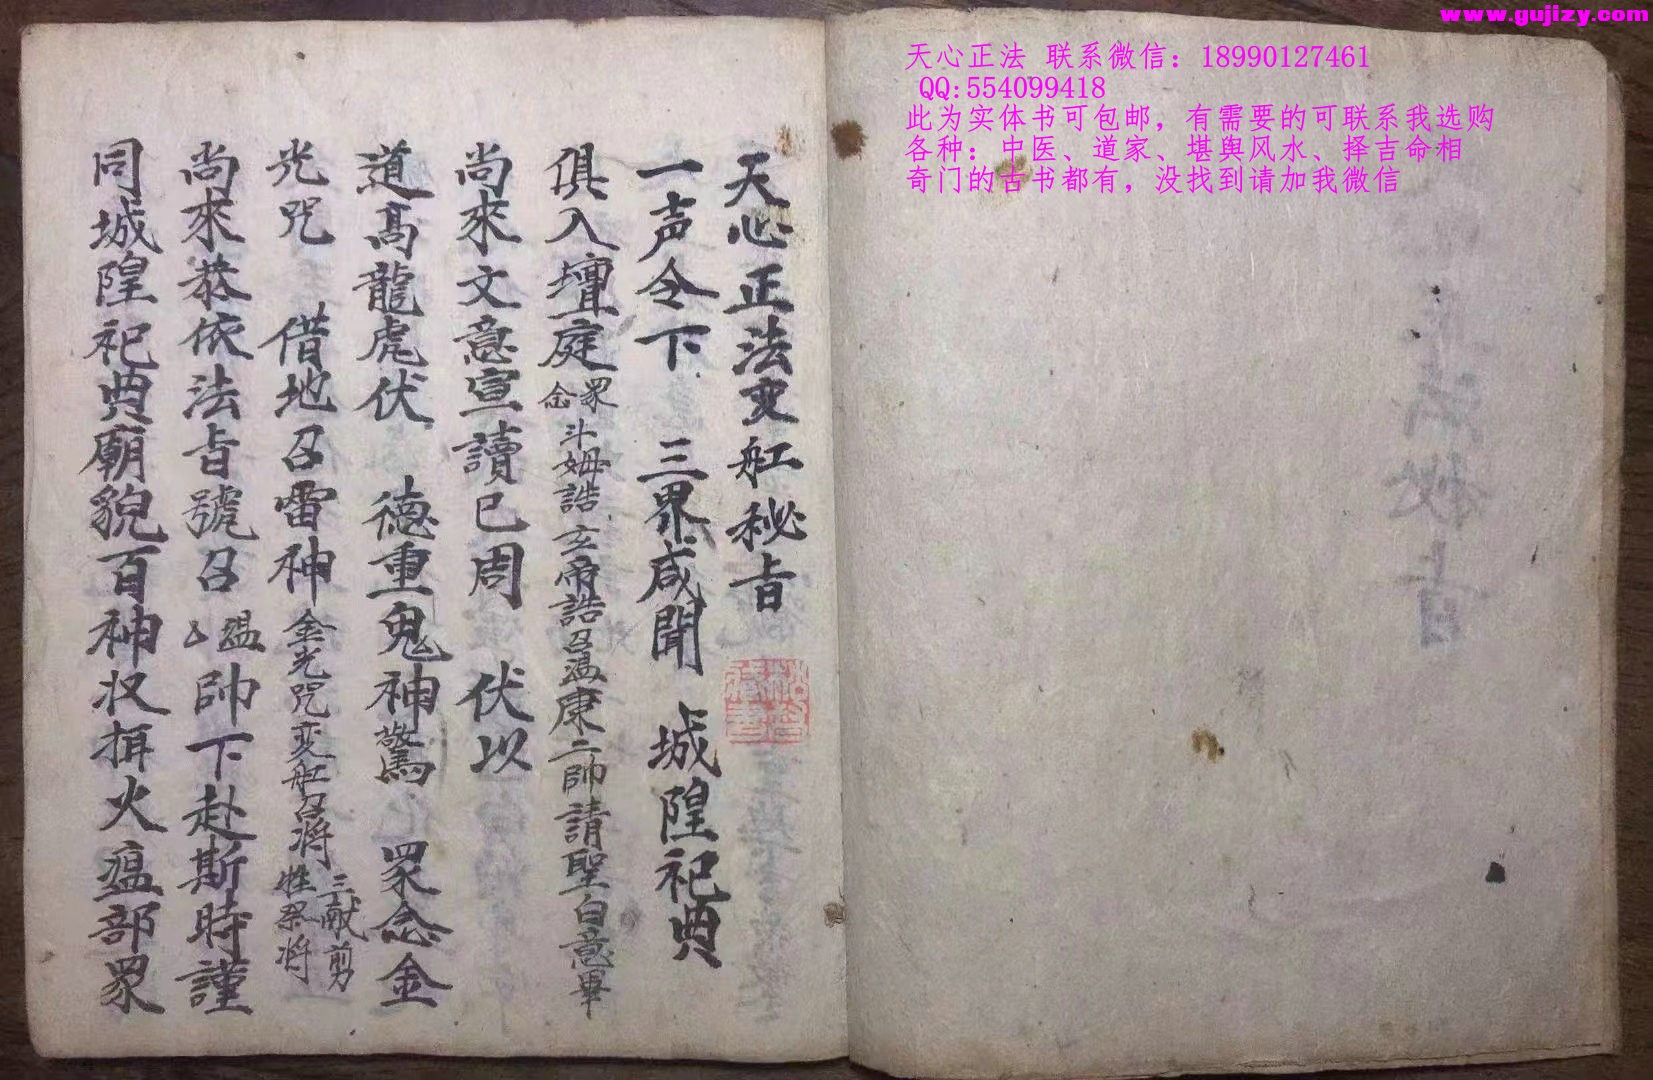 www.gujizy.com
天心正法 联系微信：18990127461
QQ:554099418
此为实体书可包邮，有需要的可联系我选购
各种：中医、道家、堪舆风水、择吉命相
奇门的古书都有，没找到请加我微信
天心正法变舡秘旨
一声令下 三界咸聞 城隍祀典
俱入壇庭 眾念 斗姆誥玄帝誥召溫康二帥請聖白意畢
尚來文意宣讀已周 伏以
道高龍虎伏 德重鬼神驚 眾念金
光咒 借地召雷神 金光咒变舡召将 三献剪牲祭将
尚來恭依法旨號召 溫 帥下赴斯時謹
同城隍祀典廟貌百神 火瘟部眾